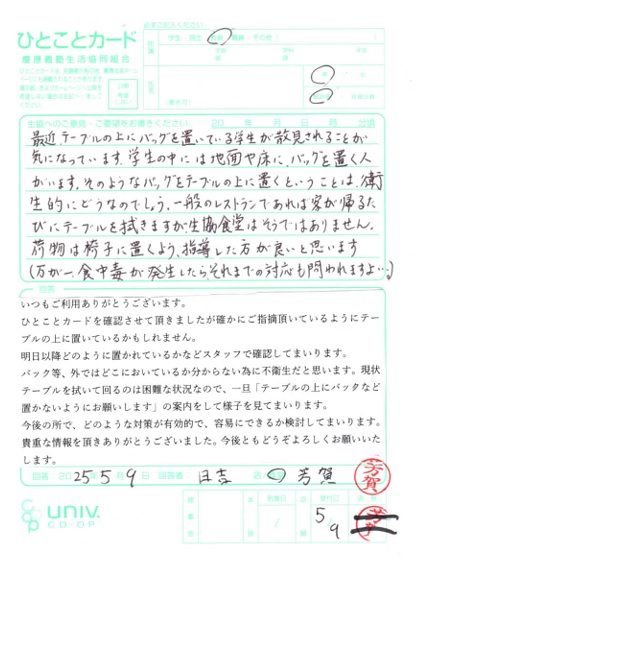 必ずご記入ください
ひとことカード
慶應義塾生活協同組合
学生・院生・教員・職員・その他（　　）
生協へのご意見・ご要望をお書きください　20　年　月　日　時　分頃
最近、テーブルの上にバッグを置いている学生が散見されることが
気になっています。学生の中には地面や床に、バッグを置く人
がいます。そのようなバッグをテーブルの上に置くということは、衛
生的にどうなのでしょう。一般のレストランであれば客が帰るた
びにテーブルを拭きますが、生協食堂はそうではありません。
荷物は椅子に置くよう、指導した方が良いと思います
(万が一、食中毒が発生したら、それまでの対応も問われますよ…)
回答
いつもご利用ありがとうございます。
ひとことカードを確認させて頂きましたが確かにご指摘頂いているようにテー
ブルの上に置いているかもしれません。
明日以降どのように置かれているかなどスタッフで確認してまいります。
バック等、外ではどこにおいているか分からない為に不衛生だと思います。現状
テーブルを拭いて回るのは困難な状況なので、一旦「テーブルの上にバッタなど
置かないようにお願いします」の案内をして様子を見てまいります。
今後の所で、どのような対策が有効的で、容易にできるか検討してまいります。
貴重な情報を頂きありがとうございました。今後ともどうぞよろしくお願いいた
します。
回答 2025年5月9日 回答者: 日吉 店 芳賀 芳賀
univ.
CO·OP
受付日
5/9